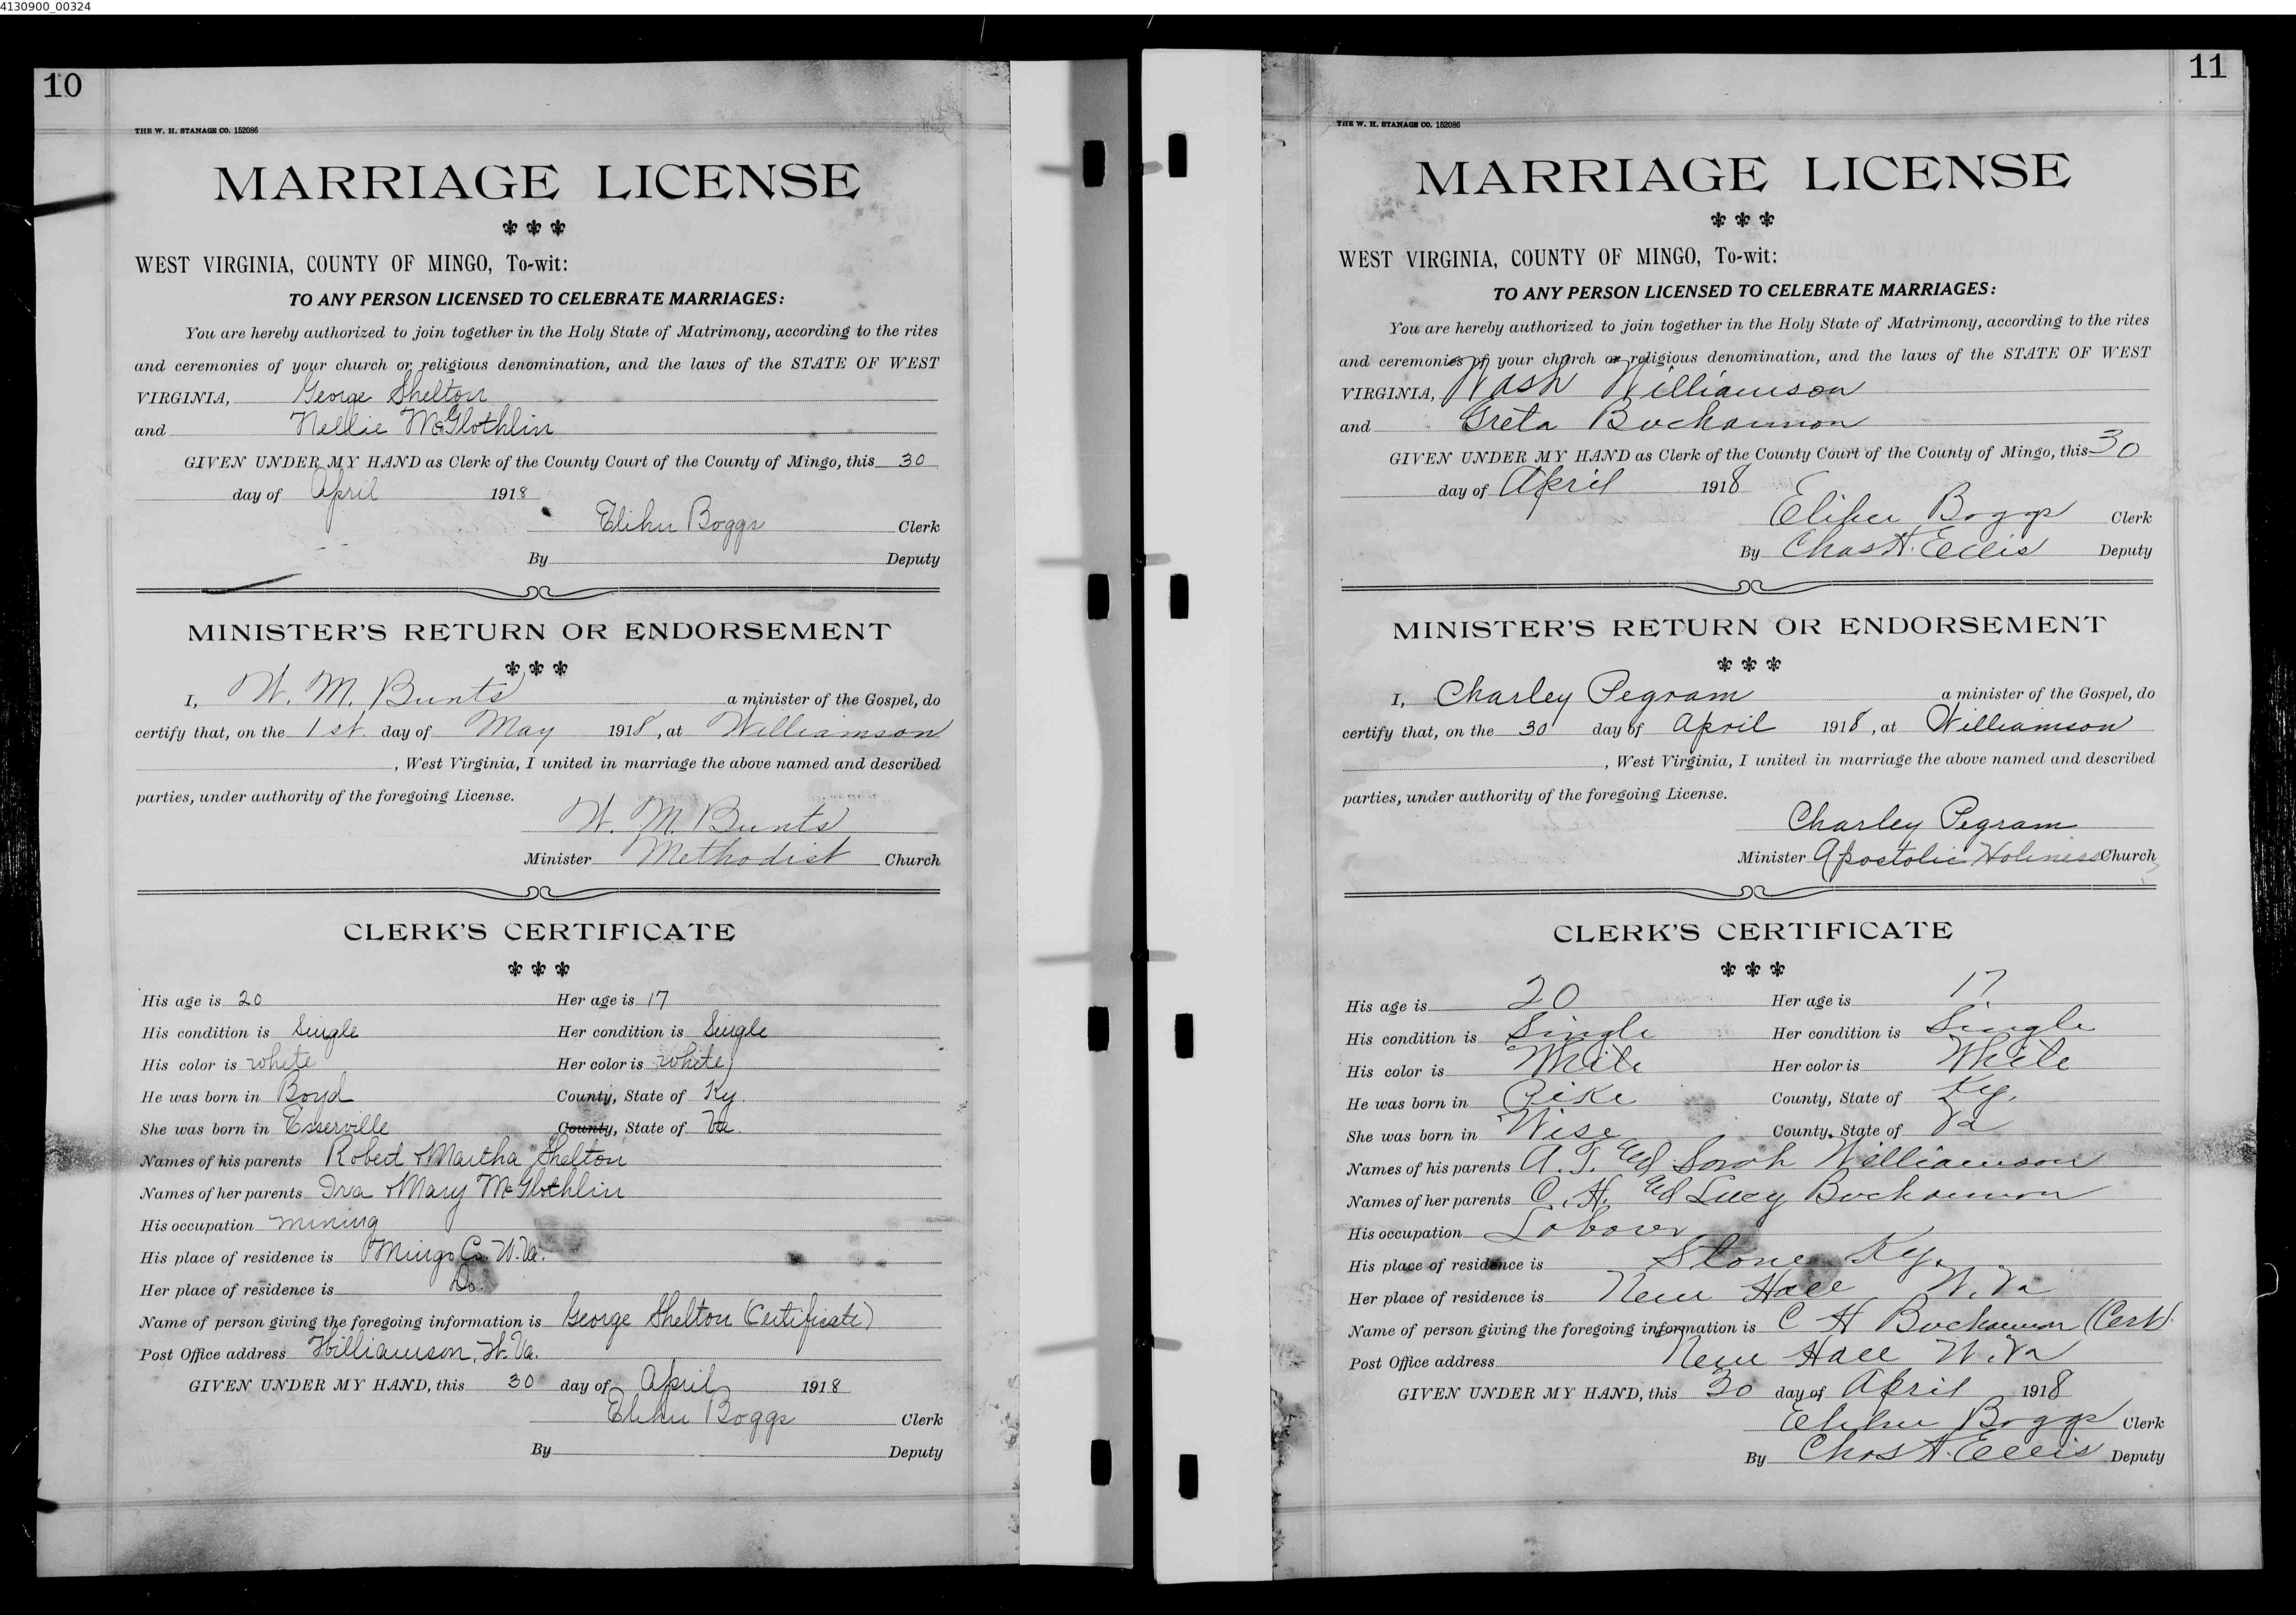 4130900_00324
10
THE W. H. STANAGE CO. 152086
MARRIAGE LICENSE
WEST VIRGINIA, COUNTY OF MINGO, To-wit:
TO ANY PERSON LICENSED TO CELEBRATE MARRIAGES:
You are hereby authorized to join together in the Holy State of Matrimony, according to the rites
and ceremonies of your church or religious denomination, and the laws of the STATE OF WEST
VIRGINIA, George Shelton
and Nellie McGlothlin
GIVEN UNDER MY HAND as Clerk of the County Court of the County of Mingo, this 30
day of April 1918
Elihu Boggs Clerk
By Deputy
MINISTER'S RETURN OR ENDORSEMENT
I, W. M. Bunts a minister of the Gospel, do
certify that, on the 1st day of May 1918, at Williamson
, West Virginia, I united in marriage the above named and described
parties, under authority of the foregoing License.
W. M. Bunts
Minister Methodist Church
CLERK'S CERTIFICATE
His age is 20 Her age is 17
His condition is Single Her condition is Single
His color is white Her color is white
He was born in Boyd County, State of Ky.
She was born in Esserville County, State of Va.
Names of his parents Robert + Martha Shelton
Names of her parents Ira + Mary McGlothlin
His occupation mining
His place of residence is Mingo Co. W. Va.
Her place of residence is Do.
Name of person giving the foregoing information is George Shelton (Certificate)
Post Office address Williamson, W. Va.
GIVEN UNDER MY HAND, this 30 day of April 1918
Elihu Boggs Clerk
By Deputy
11
THE W. H. STANAGE CO. 152086
MARRIAGE LICENSE
WEST VIRGINIA, COUNTY OF MINGO, To-wit:
TO ANY PERSON LICENSED TO CELEBRATE MARRIAGES:
You are hereby authorized to join together in the Holy State of Matrimony, according to the rites
and ceremonies of your church or religious denomination, and the laws of the STATE OF WEST
VIRGINIA, Wash Williamson
and Greta Buchannon
GIVEN UNDER MY HAND as Clerk of the County Court of the County of Mingo, this 30
day of April 1918
Elihu Boggs Clerk
By Chas H. Ellis Deputy
MINISTER'S RETURN OR ENDORSEMENT
I, Charley Pegram a minister of the Gospel, do
certify that, on the 30 day of April 1918, at Williamson
, West Virginia, I united in marriage the above named and described
parties, under authority of the foregoing License.
Charley Pegram
Minister Apostolic Holiness Church
CLERK'S CERTIFICATE
His age is 20 Her age is 17.
His condition is Single Her condition is Single
His color is White Her color is White
He was born in Pike County, State of Ky.
She was born in Wise County, State of Va
Names of his parents A. T. & Sarah Williamson
Names of her parents C. H. & Lucy Buchannon
His occupation Laborer
His place of residence is Stone Ky.
Her place of residence is New Hall W. Va
Name of person giving the foregoing information is C H Buchannon (Cert)
Post Office address New Hall W. Va
GIVEN UNDER MY HAND, this 30 day of April 1918
Elihu Boggs Clerk
By Chas H. Ellis Deputy